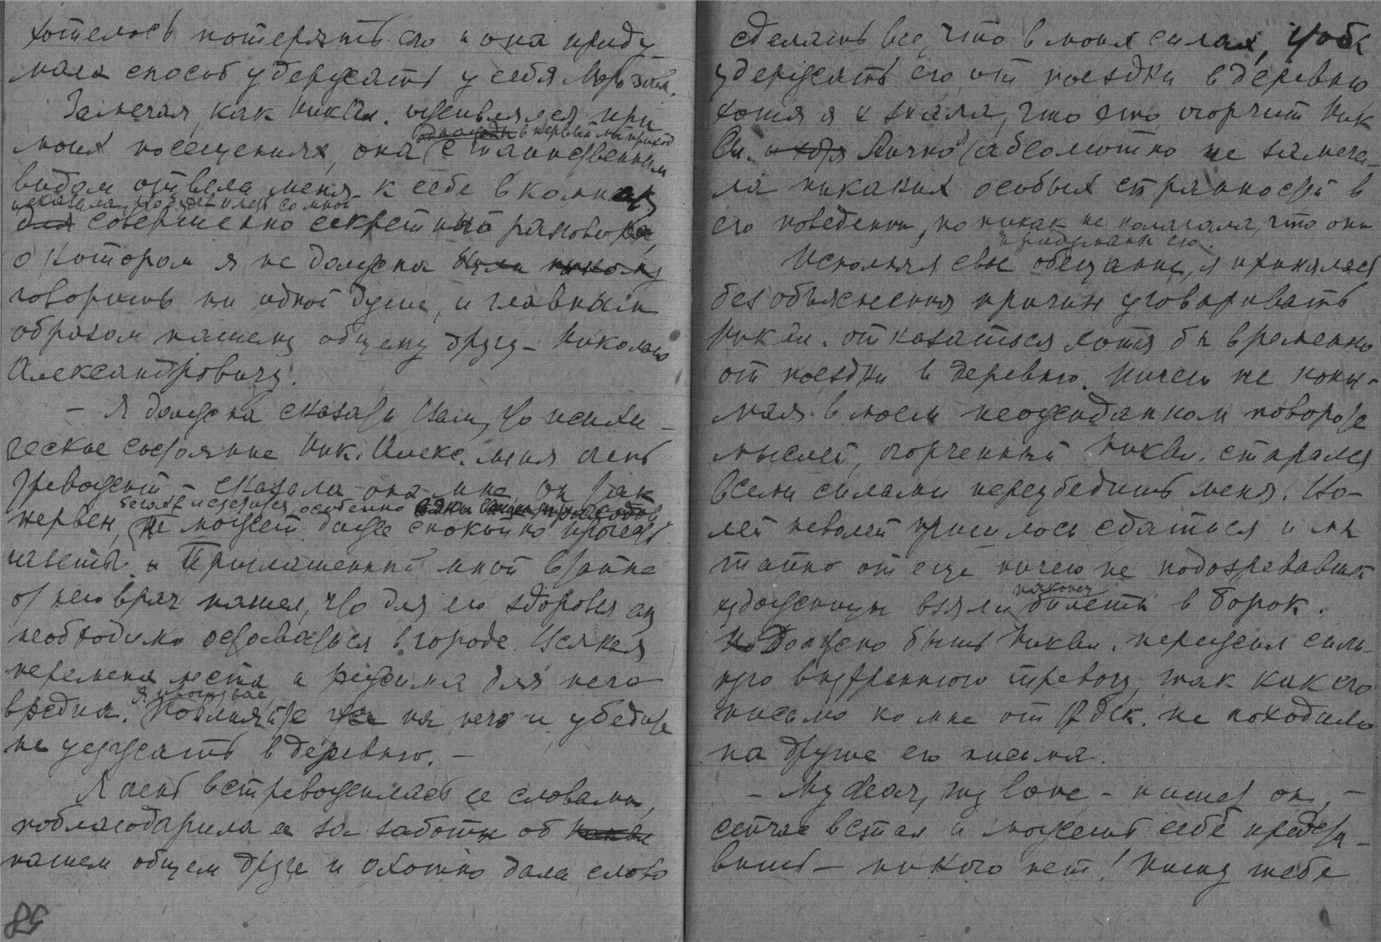 хотелось потерять его и она приду-
мала способ удержать у себя Морозова.
Замечая, как Ник Ал. оживлялся при
в первый мой приход
моих посещениях, она с таинственным
видом отвела меня к себе в комнату
и сказала, что у нея со мной
совершенно секретный разговор,
о котором я не должна
говорить ни одной душе, и главным
образом нашему общему другу – Николаю
Александровичу.
– Я должна сказать Вам, что психи-
ческое состояние Ник. Алекс. меня очень
тревожит – сказала она мне, он так
нервен, не может даже спокойно прочесть
газеты. Приглашенный мной втайне
от него врач нашел, что для его здоровья
необходимо оставаться в городе. Всякая
перемена места и режима для него
вредна. Повлияйте на него и убедите
Я прошу вас
не уезжать в деревню. –
Я очень встревожилась ее словами,
поблагодарила ее за заботы об
нашем общем друге и охотно дала слово
85
сделать все, что в моих силах, чтобы
удержать его от поездки в деревню
хотя я и знала, что это огорчит Ник
Ал. Лично я абсолютно не замеча-
ла никаких особых странностей в
его поведении, но никак не полагала, что они
придуманы ею.
Исполняя свое обещание, я принялась
без объяснения причин уговаривать
Ник Ал. отказаться хотя бы временно
от поездки в деревню. Ничего не пони-
мая в моем неожиданном повороте
мыслей, огорченный Ник Ал. старался
всеми силами переубедить меня. Во-
лей неволей пришлось сдаться и мы
тайно от еще ничего не подозревавшей
наконец
взяли билеты в Борок.
Должно быть Ник Ал. пережил силь-
ную внутреннюю тревогу, так как его
письмо ко мне от 12 дек. не походило
на другие его письма.
– My dear, my love – писал он, –
сейчас встал и можешь себе предста-
вить – никого нет! Пишу тебе